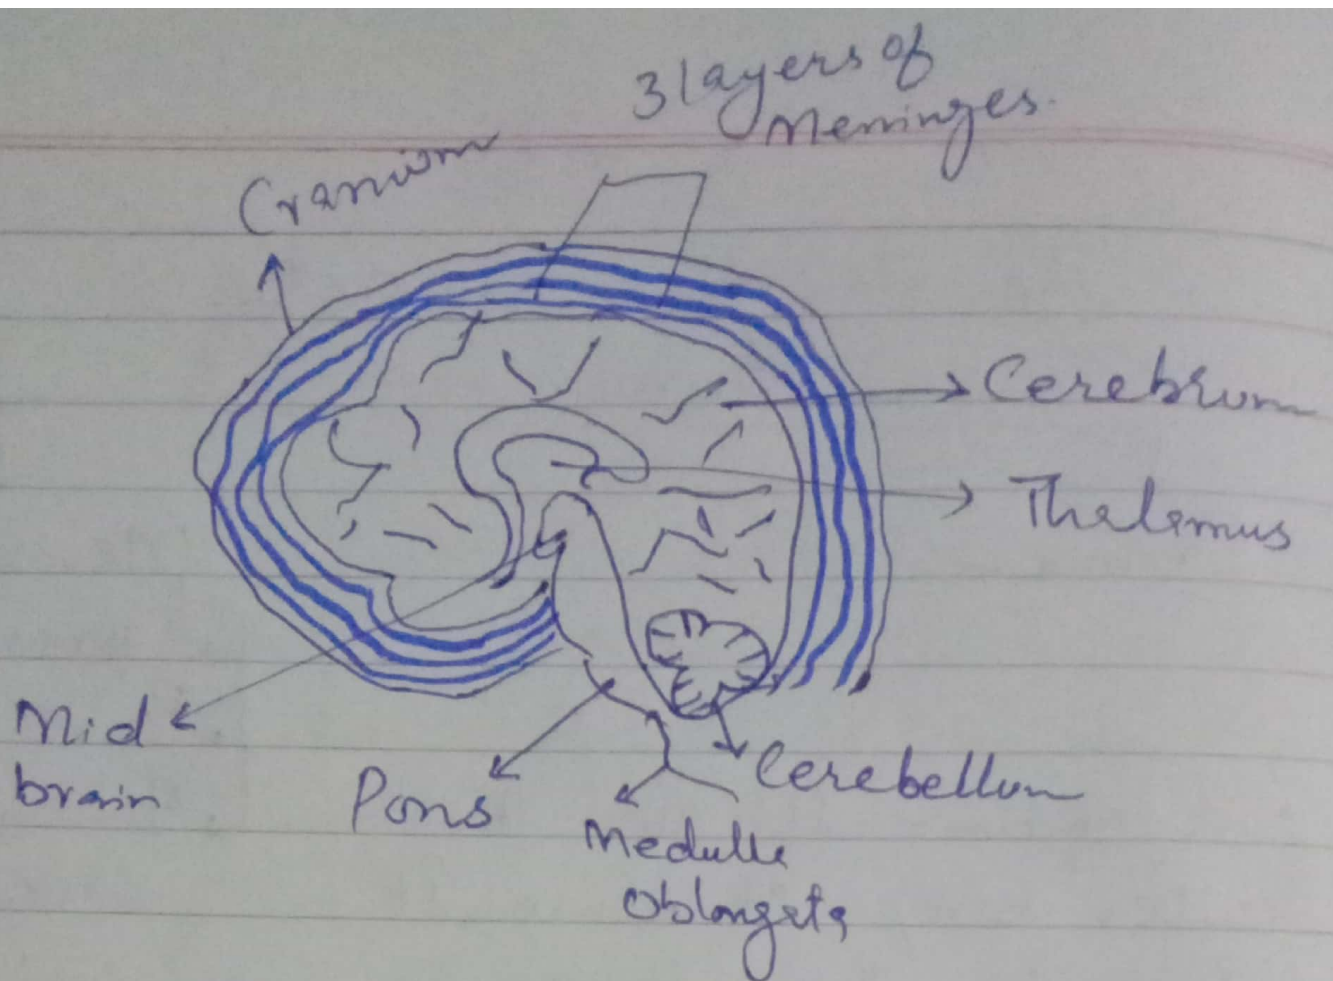 3 layers of
Meninges.
Cranium
Cerebrum
Thelemus
Mid
brain
Pons
Cerebellum
Medulla
Oblongata